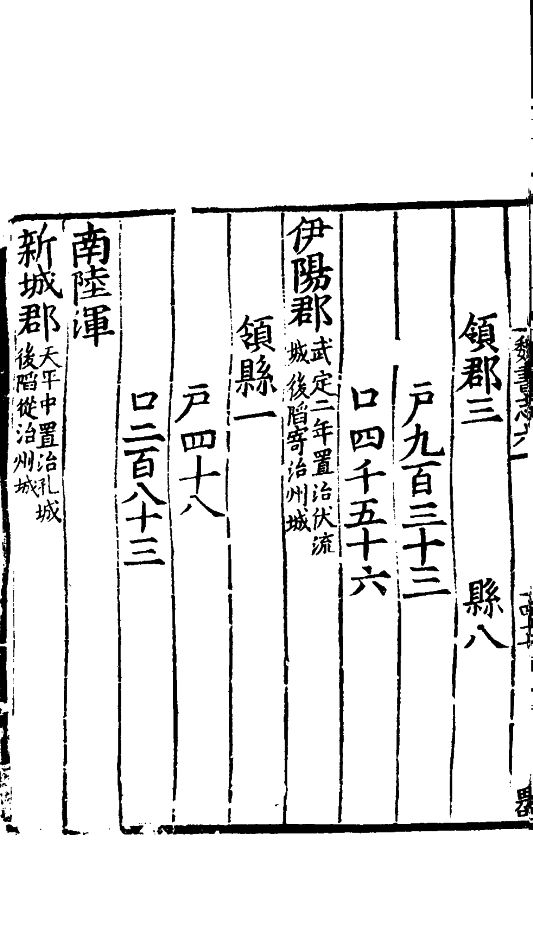 魏書志六
領郡三 縣八
戶九百三十三
口四千五十六
伊陽郡 武定二年置治伏流
城後陷寄治州城
領縣一
戶四十八
口二百八十三
南陸渾
新城郡 天平中置治孔城
後陷從治州城